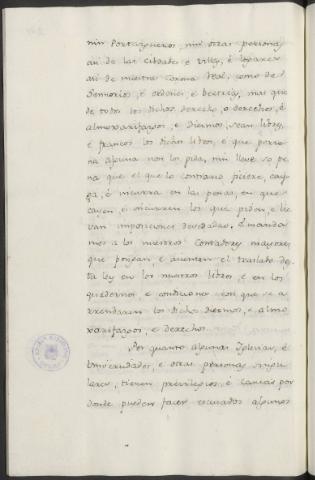 nin Portazgueros, nin otras personas
asi de las cibdades e villas, e logares
asi de nuestra corona Real, como de
Sennorios, e ordenes e beetrias, mas que
de todos los dichos derecho, o derechos, e
almoxarifazgos, e diezmos, sean libres,
e francos los dichos libros, e que perso-
na alguna non los pida, nin lleve so pe-
na que el que lo contrario ficiere, cay-
ga, e incurra en las penas, en que
caen, e incurren los que piden, e lie-
van imposiciones devedadas. E manda-
mos a los nuestros Contadores mayores,
que pongan e asienten el traslado des-
ta ley en los nuestros libros, e en los
quadernos e condiciones con que se a-
rrendaren los dichos diezmos, e almo-
xarifazgos, e derechos.
Por quanto algunas Iglesias, e
Universidades, e otras personas singu-
lares, tienen previlegios, e cartas por
donde pueden facer escusados algunos